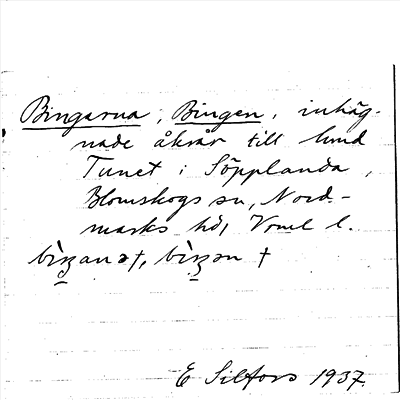 Bingarna, Bingen, inhäg-
nade åkrar till hmd
Tunet i Söpplanda,
Blomskogs sn, Nord-
marks hd, Vrml l.
E Silfors 1937.